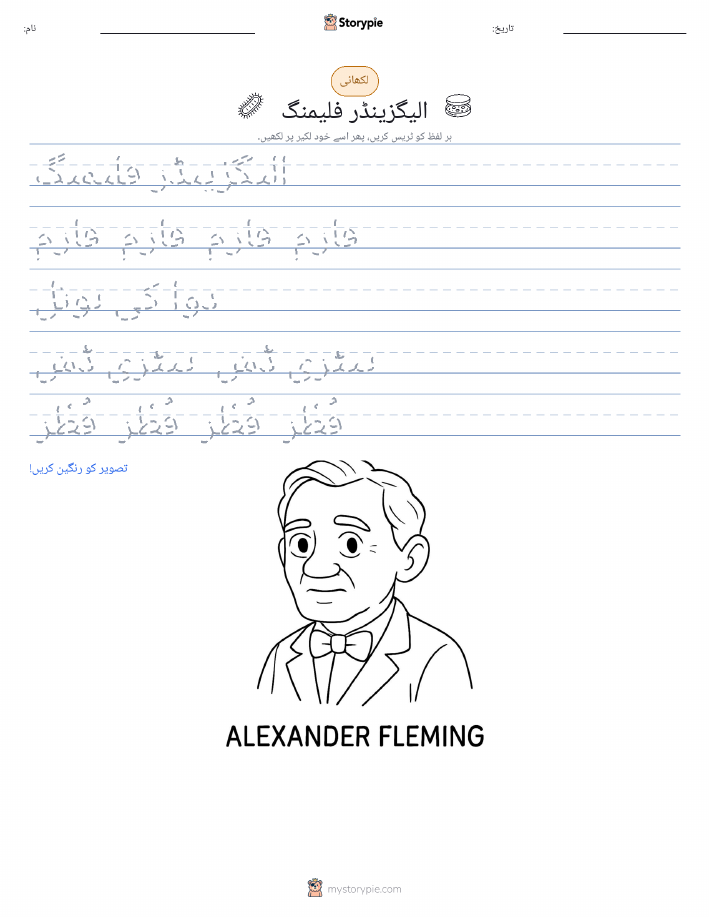 نام:
Storypie
تاریخ:
لکھائی
الیگزینڈر فلیمنگ
ہر لفظ کو ٹریس کریں، پھر اسے خود لکیر پر لکھیں۔
الیگزینڈر فلیمنگ
فارم فارم فارم فارم
دوا کی بوتل
پیٹری ڈش پیٹری ڈش
تصویر کو رنگین کریں!
ALEXANDER FLEMING
mystorypie.com